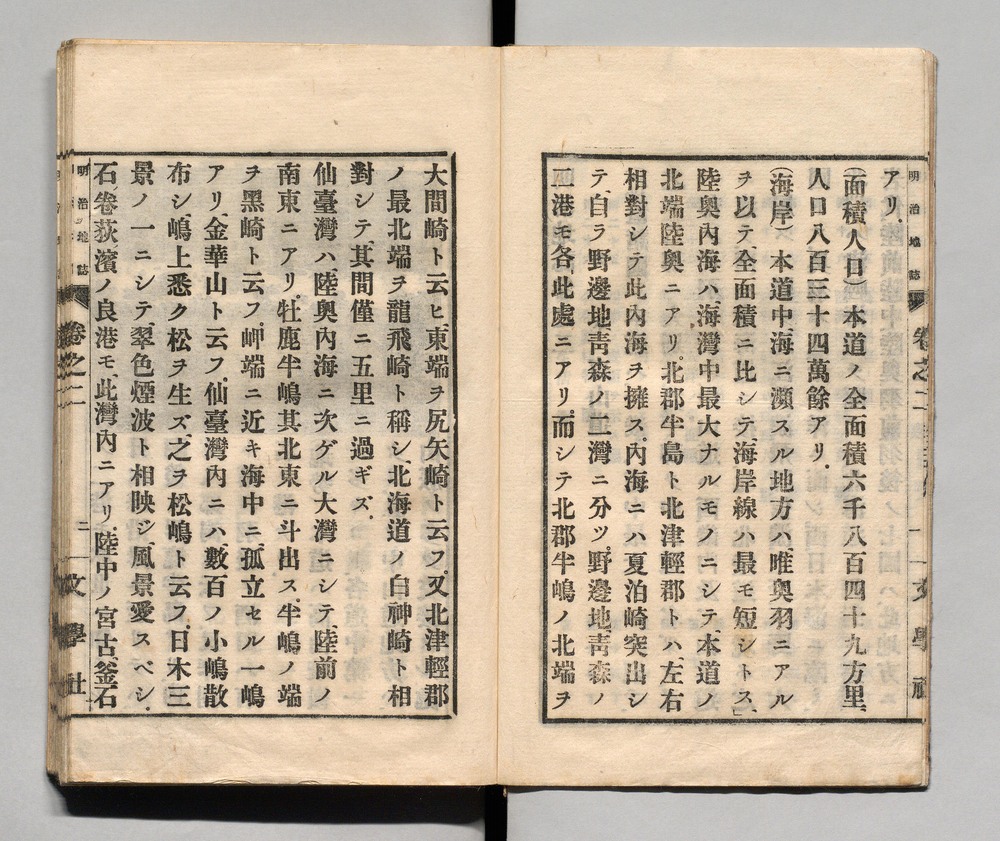 明治地誌 卷之二 一 文學社
アリ、
(面積人口) 本道ノ全面積六千八百四十九方里、
人口八百三十四萬餘アリ、
(海岸) 本道中、海ニ瀕スル地方ハ、唯奧羽ニアル
ヲ以テ、全面積ニ比シテ、海岸線ハ最モ短シトス、
陸奧內海ハ、海灣中最大ナルモノニシテ、本道ノ
北端陸奧ニアリ、北郡半島ト北津輕郡トハ、左右
相對シテ此內海ヲ擁ス、內海ニハ夏泊崎突出シ
テ、自ラ野邊地、靑森ノ二灣ニ分ツ、野邊地、靑森ノ
二港モ各此處ニアリ、而シテ北郡半嶋ノ北端ヲ
大間崎ト云ヒ、東端ヲ尻矢崎ト云フ、又北津輕郡
ノ最北端ヲ龍飛崎ト稱シ、北海道ノ白神崎ト相
對シテ、其間僅ニ五里ニ過ギズ、
仙臺灣ハ、陸奧內海ニ次グル大灣ニシテ陸前ノ
南東ニアリ、牡鹿半嶋其北東ニ斗出ス、半嶋ノ端
ヲ黑崎ト云フ、岬端ニ近キ海中ニ、孤立セル一嶋
アリ、金華山ト云フ、仙臺灣內ニハ、數百ノ小嶋散
布シ、嶋上悉ク松ヲ生ズ、之ヲ松嶋ト云フ、日木三
景ノ一ニシテ、翠色煙波ト相映ジ、風景愛スベシ、
石卷、荻濱ノ良港モ、此灣內ニアリ、陸中ノ宮古、釜石
明治地誌 卷之二 二 文學社